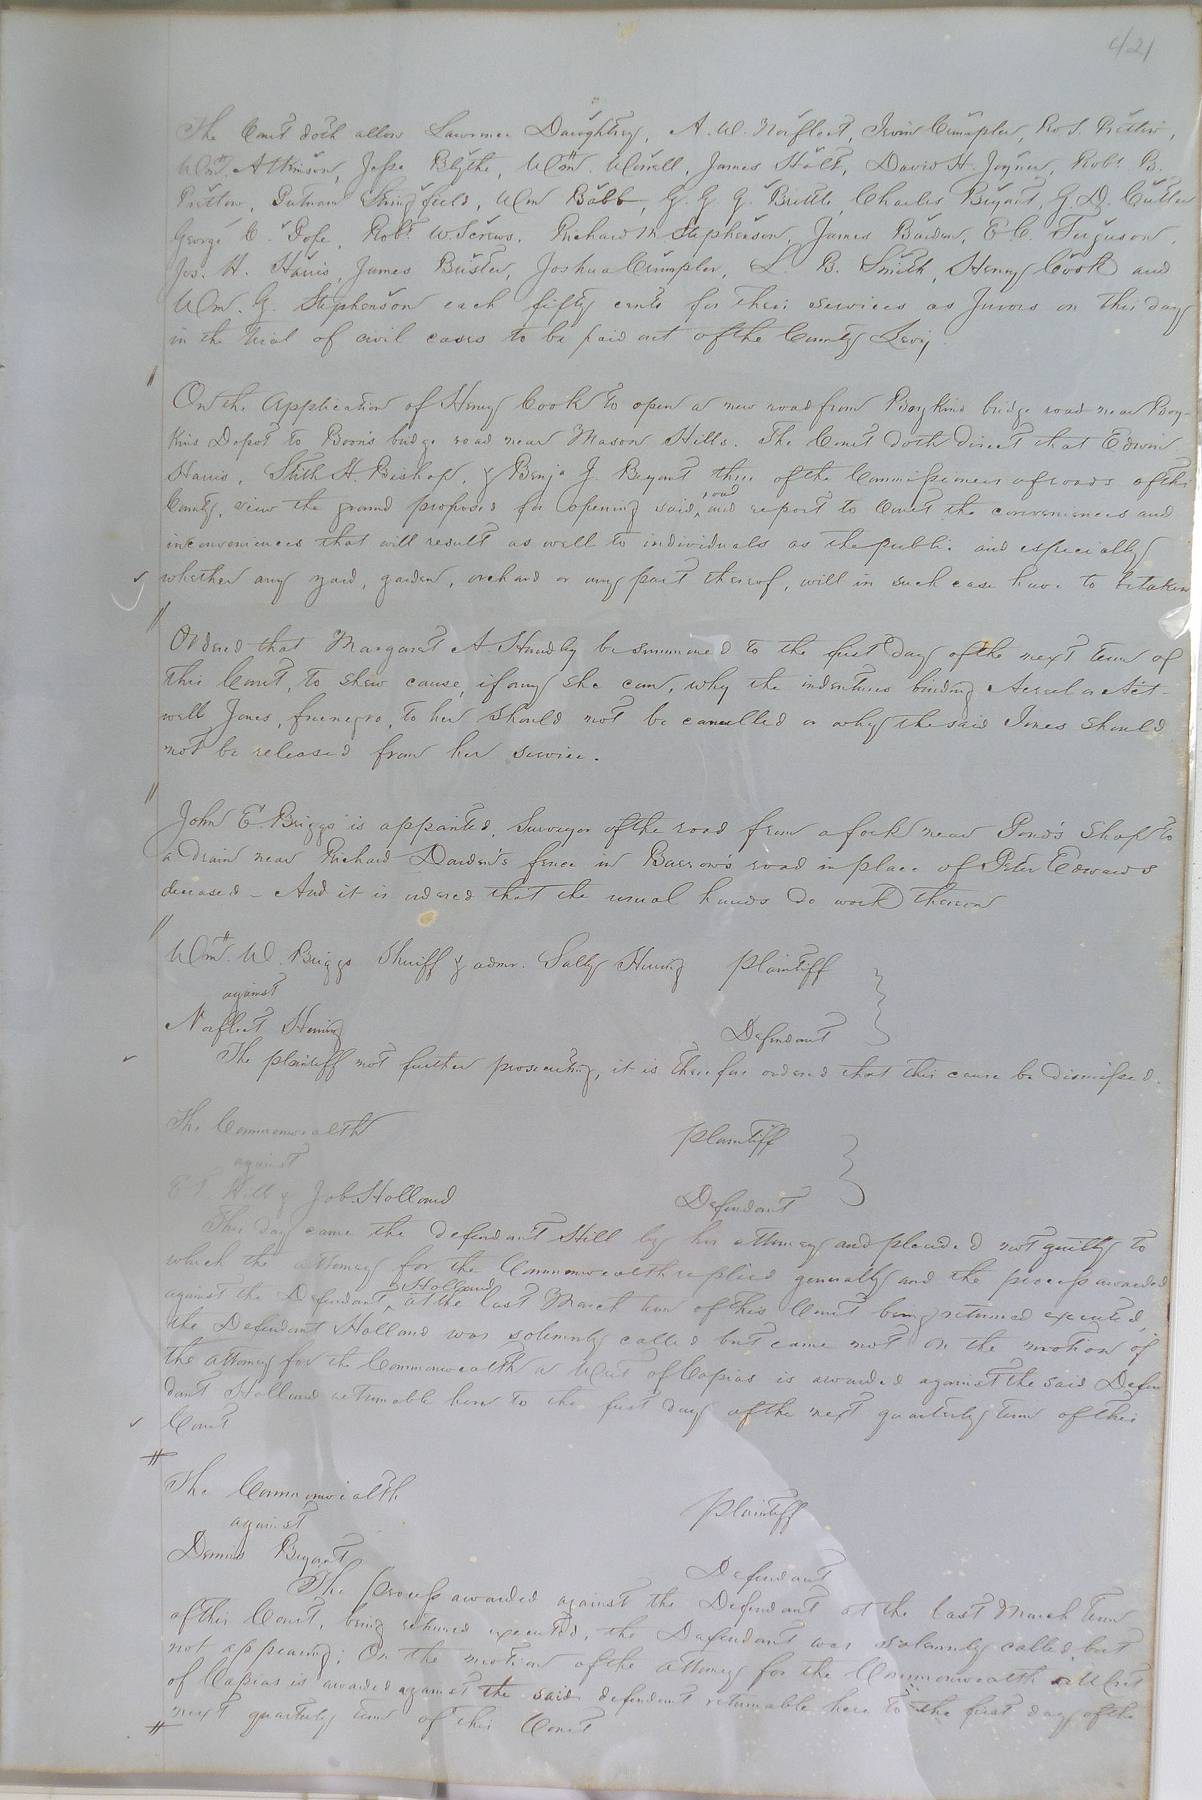 421
The Court doth allow Lawrence Daughtrey, A. W. Norfleet, Irvin Crumpler, Ro. S. Pretlow,
Wm. Atkinson, Jesse Blythe, Wm. Worrell, James Holt, David H. Joyner, Robt. B.
Pretlow, Putnam Stringfield, Wm Babb, G. G. G. Brittle, Charles Bryant, G. D. Cutler
George C. Pope, Robt. W. Screws, Richard M Stephenson, James Barden, E. C. Ferguson,
Jos. H. Harris, James Brister, Joshua Crumpler, L. B. Smith, Henry Cook and
Wm. G. Stephenson each fifty cents for their services as Jurors on this day
in the trial of civil cases to be paid out of the County Levy
On the application of Henry Cook to open a new road from Boykins bridge road near Boy-
kins Depot to Boon's bridge road near Mason Hills. The Court doth direct that Edwin
Harris, Stith H. Bishop, & Benja J. Bryant three of the Commissioners of roads of this
County, view the ground proposed for opening said road and report to Court the conveniences and
inconveniences that will result as well to individuals as the public and especially
whether any yard, garden, orchard or any part thereof, will in such case have to be taken
Ordered that Margaret A Hundly be summoned to the first day of the next term of
this Court, to shew cause, if any she can, why the indentures binding Aerel a Act-
well Jones, free negro, to her should not be cancelled or why the said Jones should
not be released from her service.
John E. Briggs is appointed, Surveyor of the road from a fork near Pond's Shop to
a drain near Richard Darden's fence in Barrow's road in place of Peter Edwards
deceased - And it is ordered that the usual hands do work thereon
Wm. W. Briggs Sheriff & admr. Sally Herring plaintiff
against
Norfleet Herring Defendant
The plaintiff not further prosecuting, it is therefore ordered that this cause be dismissed.
The Commonwealth plaintiff
against
Hill & Job. Holland Defendant
This day came the defendant Hill by his attorney and pleaded not guilty to
which the attorney for the Commonwealth replied generally and the process awarded
against the Defendant Holland at the last March term of this Court being returned executed,
the Defendant Holland was solemnly called but came not on the motion of
the attorney for the Commonwealth a Writ of Capias is awarded against the said Defen
dant Holland returnable here to the first day of the next quarterly term of this
Court
The Commonwealth plaintiff
against
Dennis Bryant Defendant
The process awarded against the Defendant at the last March term
of this Court, being returned executed, the Defendant was solemnly called, but
not appearing; On the motion of the attorney for the Commonwealth a Writ
of Capias is awarded against the said defendant returnable here to the first day of the
next quarterly term of this Court